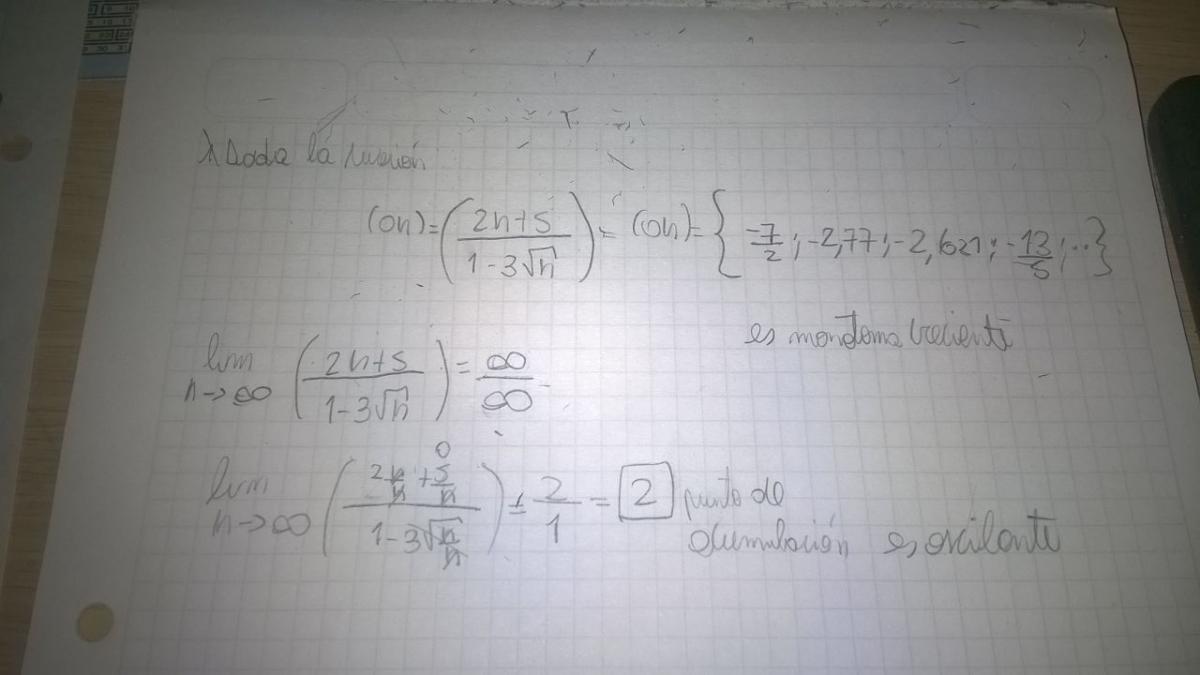 Dada la sucesión
(an) = (2n+5 / 1-3√n) = (an) = { -7/2 ; -2,77 ; -2,621 ; -13/5 ; ...}
es monótona creciente
lim n->∞ (2n+5 / 1-3√n) = ∞/∞
lim n->∞ (2n/n + 5/n 0 / 1-3√n/n) = 2/1 = 2 punto de
acumulación es oscilante